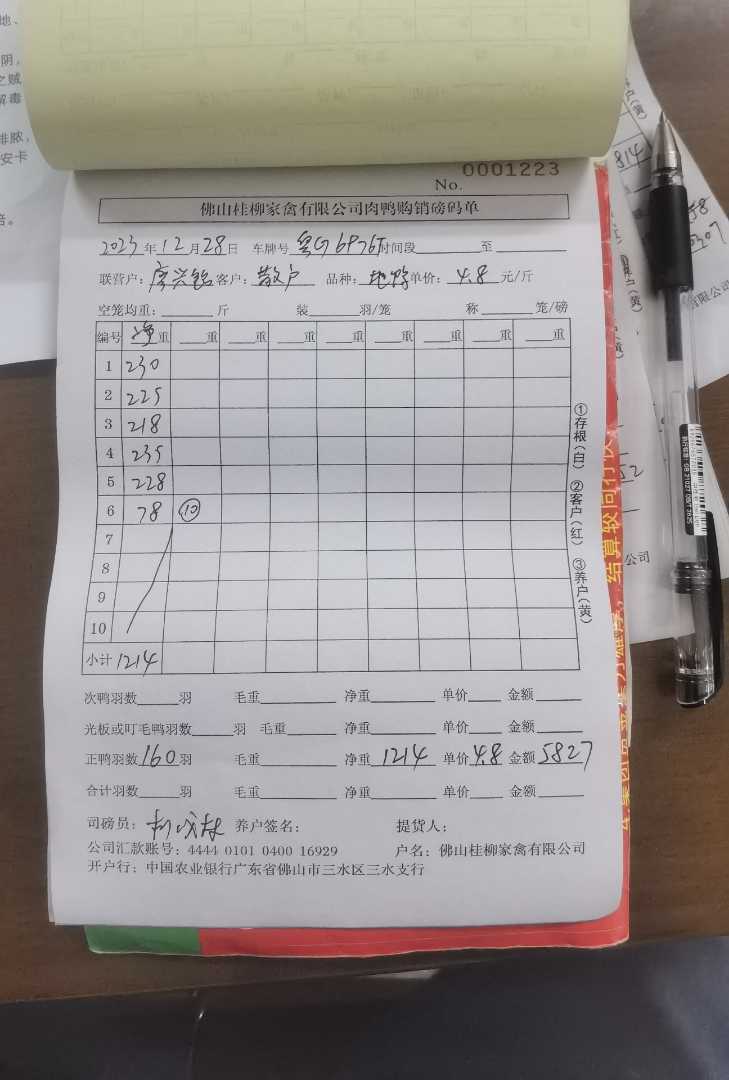 0001223
No.
佛山桂柳家禽有限公司肉鸭购销磅码单
2023年12月28日 车牌号 粤G6P76F 时间段 至
联营户: 客户:散户 品种: 单价:4.8 元/斤
空笼均重: 斤 装 羽/笼 称 笼/磅
编号 净重 重 重 重 重 重 重 重 重
1 230
2 225
3 218
4 235
5 228
6 78 10
7
8
9
10
小计 1214
次鸭羽数 羽 毛重 净重 单价 金额
光板或叮毛鸭羽数 羽 毛重 净重 单价 金额
正鸭羽数 160 羽 毛重 净重 1214 单价 4.8 金额 5827
合计羽数 羽 毛重 净重 单价 金额
司磅员: 养户签名: 提货人:
公司汇款账号: 4444 0101 0400 16929 户名: 佛山桂柳家禽有限公司
开户行: 中国农业银行广东省佛山市三水区三水支行
①存根(白) ②客户(红) ③养户(黄)
结算较同行快
814
公司
有限公司
阴,
之贼
解毒
排脓,
安卡